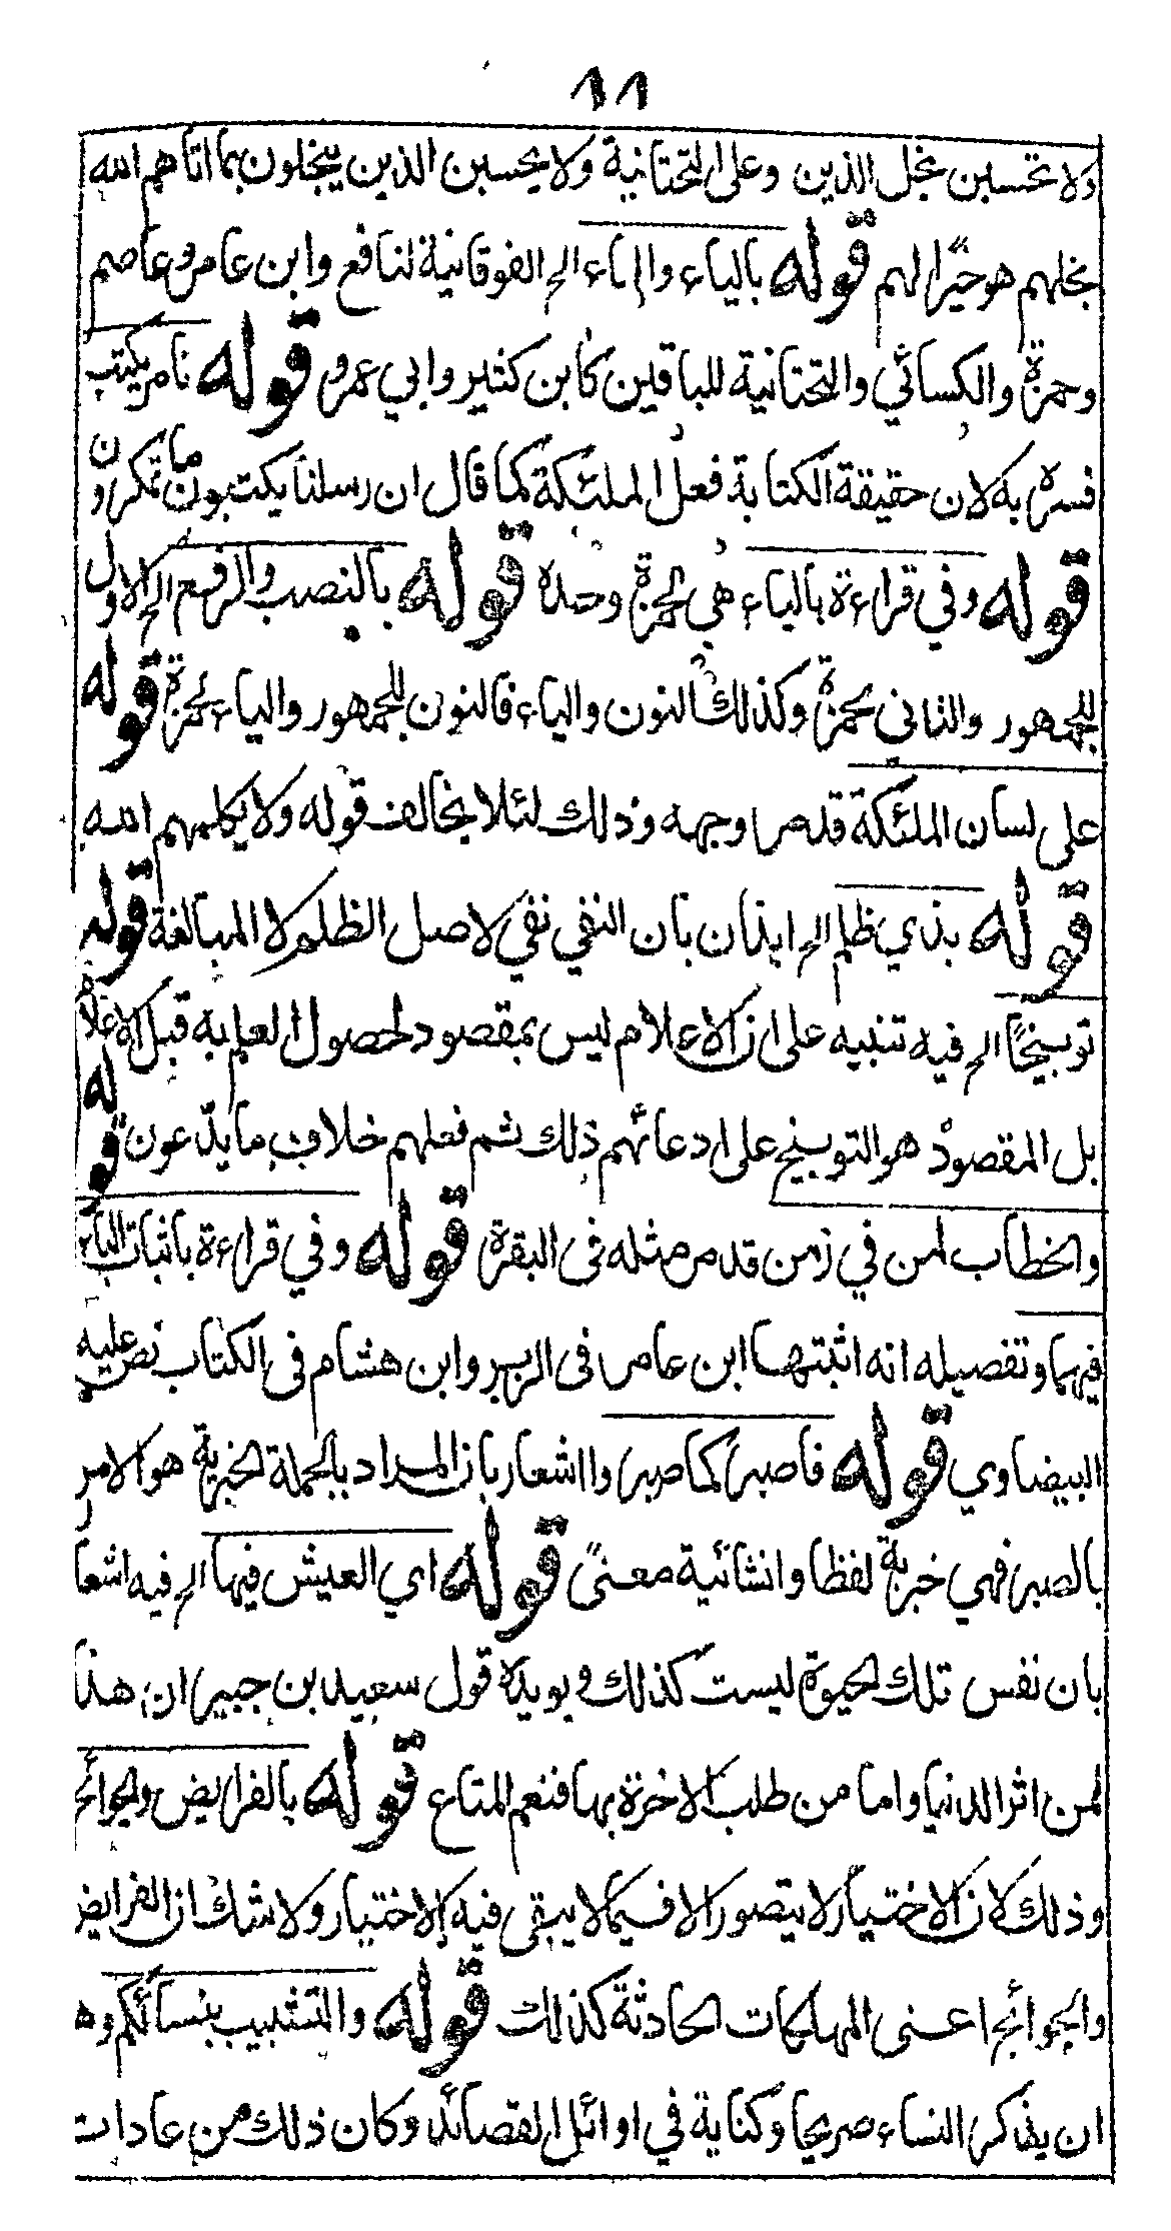 ١١
ولا تحسبن بخل الذين وعلى التحتانية ولا يحسبن الذين يبخلون بما اتاهم الله
بخلهم هو خيرًا لهم قوله بالياء والتاء الخ الفوقانية لنافع وابن عامر وعاصم
وحمزة والكسائي والتحتانية للباقين كابن كثير وابي عمرو قوله نامر بكتب
فسره به لان حقيقة الكتابة فعل الملئكة كما قال ان رسلنا يكتبون ما تمكرون
قوله وفي قراءة بالياء هي لحمزة وحده قوله بالنصب والرفع الخ الاول
للجمهور والثاني لحمزة وكذلك النون والياء فالنون للجمهور والياء لحمزة قوله
على لسان الملئكة قد مر وجهه وذلك لئلا يخالف قوله ولا يكلمهم الله
قوله بذي ظلم الخ ايذان بان النفي نفي لاصل الظلم لا المبالغة قوله
توبيخًا الخ فيه تنبيه على ان الاعلام ليس بمقصود لحصول العلم به قبل الاعلام
بل المقصود هو التوبيخ على ادعائهم ذلك ثم فعلهم خلاف ما يدّعون قوله
والخطاب لمن في زمن قد مر مثله فى البقرة قوله وفي قراءة باثبات الباء
فيهما وتفصيله انه اثبتها ابن عامر فى الزبر وابن هشام فى الكتاب نص عليه
البيضاوي قوله فاصبر كما صبروا اشعار بان المراد بالجملة الخبرية هو الامر
بالصبر فهي خبرية لفظا وانشائية معنىً قوله اي العيش فيها الخ فيه اشعا
بان نفس تلك الحيوة ليست كذلك ويويده قول سعيد بن جبير ان هذا
لمن اثر الدنيا واما من طلب الاخرة بها فنعم المتاع قوله بالفرايض والجوائح
وذلك لان الاختيار لا يتصور الا فيما لا يبقى فيه الاختيار ولا شك ان الفرايض
والجوائح اعنى المهلكات الحادثة كذلك قوله والتشبيب بنسائكم وه
ان يذكر النساء صريحا وكناية في اوائل القصائد وكان ذلك من عادات